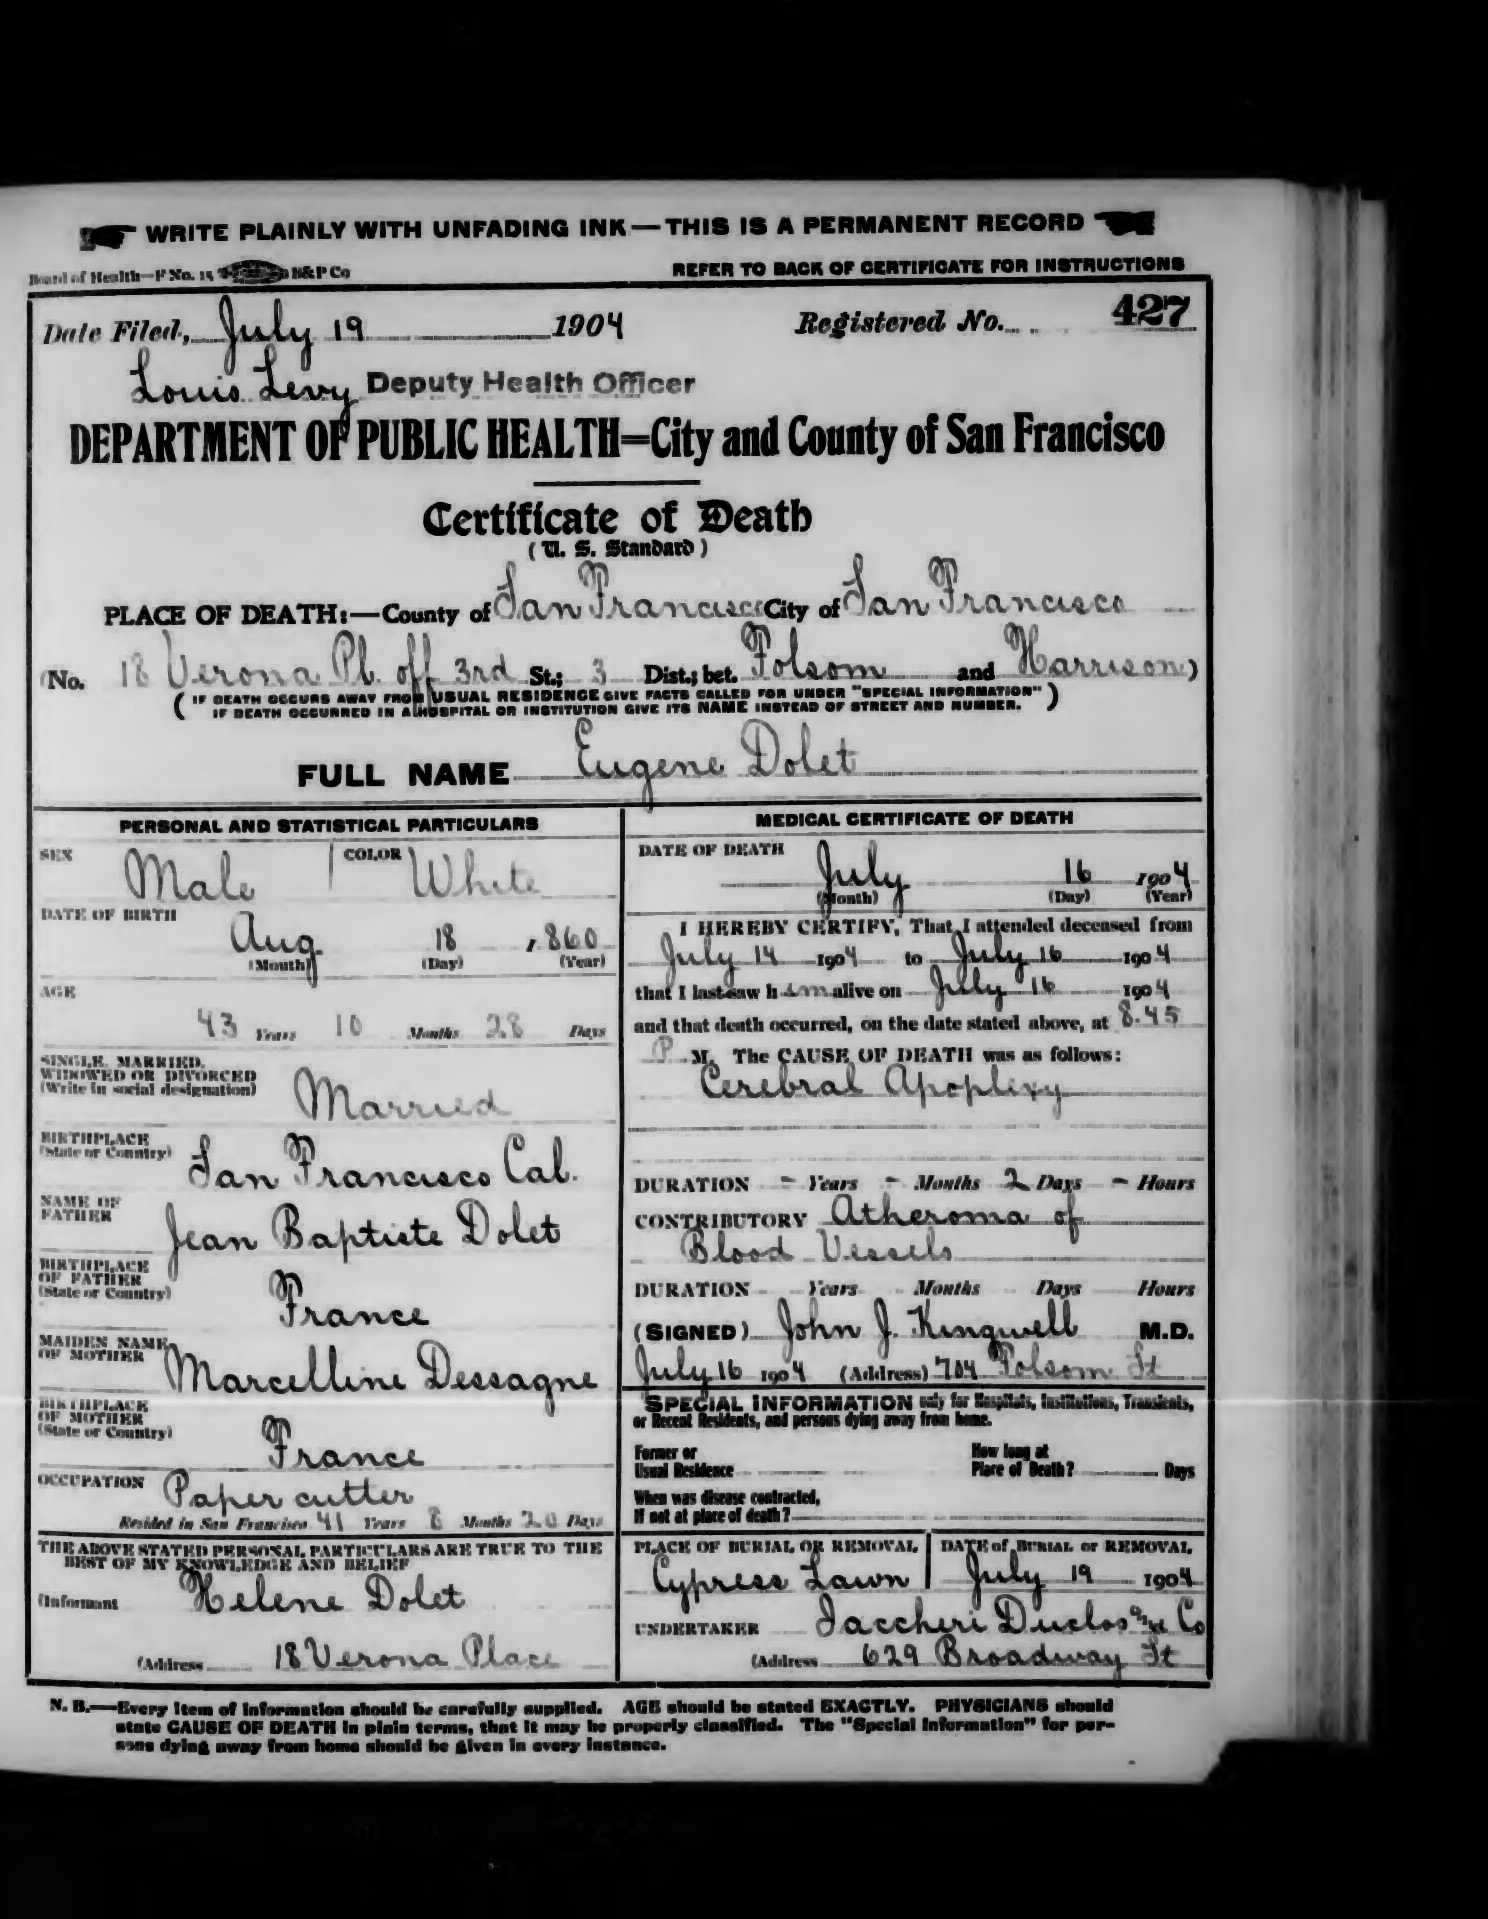 WRITE PLAINLY WITH UNFADING INK—THIS IS A PERMANENT RECORD
Board of Health—F No. 15 B&P Co
REFER TO BACK OF CERTIFICATE FOR INSTRUCTIONS
Date Filed, July 19 1904 Registered No. 427
Louis Levy Deputy Health Officer
DEPARTMENT OF PUBLIC HEALTH=City and County of San Francisco
Certificate of Death
(U. S. Standard)
PLACE OF DEATH:—County of San Francisco City of San Francisco
(No. 18 Verona Pl. off 3rd St.; 3 Dist.; bet. Folsom and Harrison)
( IF DEATH OCCURS AWAY FROM USUAL RESIDENCE GIVE FACTS CALLED FOR UNDER "SPECIAL INFORMATION"
IF DEATH OCCURRED IN A HOSPITAL OR INSTITUTION GIVE ITS NAME INSTEAD OF STREET AND NUMBER. )
FULL NAME Eugene Dolet
PERSONAL AND STATISTICAL PARTICULARS
SEX Male COLOR White
DATE OF BIRTH
Aug. 18 , 860
(Month) (Day) (Year)
AGE
43 Years 10 Months 28 Days
SINGLE, MARRIED,
WIDOWED OR DIVORCED
(Write in social designation) Married
BIRTHPLACE
(State or Country) San Francisco Cal.
NAME OF
FATHER Jean Baptiste Dolet
BIRTHPLACE
OF FATHER
(State or Country) France
MAIDEN NAME
OF MOTHER Marcelline Dessagne
BIRTHPLACE
OF MOTHER
(State or Country) France
OCCUPATION Paper cutter
Resided in San Francisco 41 Years 8 Months 20 Days
THE ABOVE STATED PERSONAL PARTICULARS ARE TRUE TO THE
BEST OF MY KNOWLEDGE AND BELIEF
(Informant Helene Dolet
(Address 18 Verona Place
MEDICAL CERTIFICATE OF DEATH
DATE OF DEATH
July 16 1904
(Month) (Day) (Year)
I HEREBY CERTIFY, That I attended deceased from
July 14 1904 to July 16 1904
that I last saw him alive on July 16 1904
and that death occurred, on the date stated above, at 8.45
P M. The CAUSE OF DEATH was as follows:
Cerebral Apoplexy
DURATION - Years - Months 2 Days - Hours
CONTRIBUTORY Atheroma of
Blood Vessels
DURATION Years Months Days Hours
(SIGNED) John J. Kingwell M.D.
July 16 1904 (Address) 704 Folsom St
SPECIAL INFORMATION only for Hospitals, Institutions, Transients,
or Recent Residents, and persons dying away from home.
Former or
Usual Residence
How long at
Place of Death? Days
When was disease contracted,
If not at place of death?
PLACE OF BURIAL OR REMOVAL
Cypress Lawn
DATE of BURIAL or REMOVAL
July 19 1904
UNDERTAKER Iaccheri Duclos & Co
(Address 629 Broadway St
N. B.—Every item of information should be carefully supplied. AGE should be stated EXACTLY. PHYSICIANS should
state CAUSE OF DEATH in plain terms, that it may be properly classified. The "Special Information" for per-
sons dying away from home should be given in every instance.